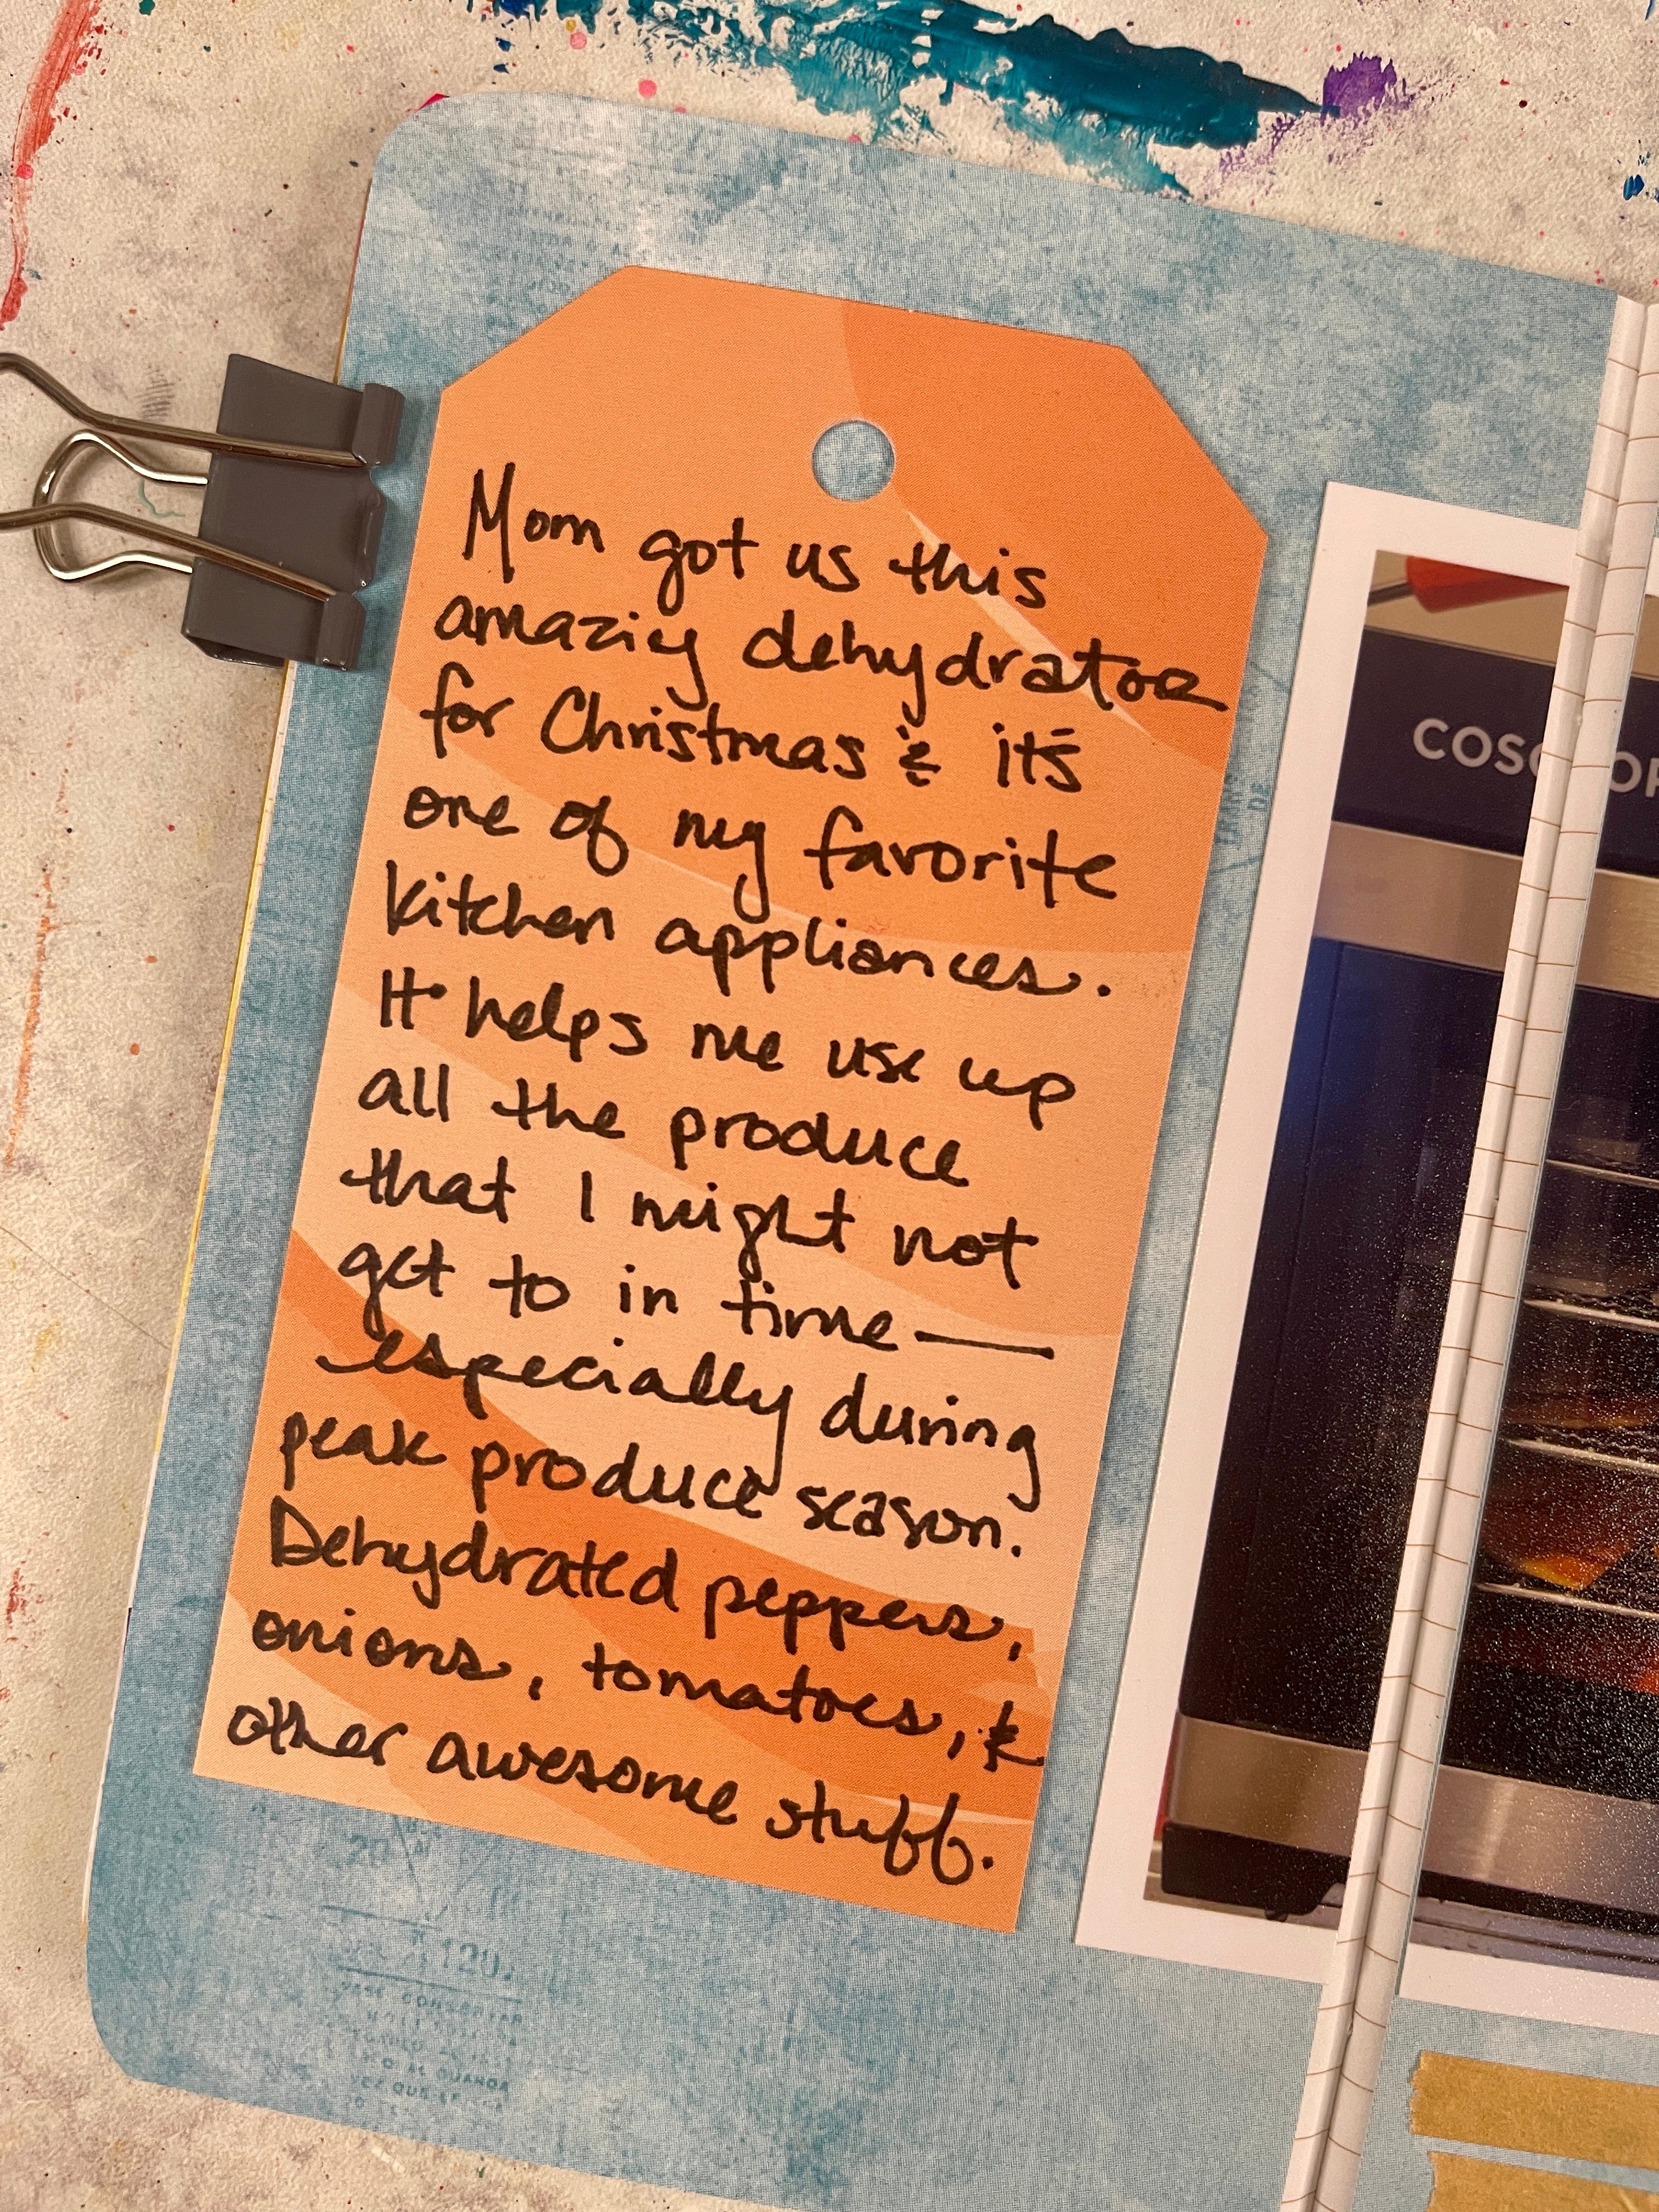 Mom got us this
amazing dehydrator
for Christmas & it's
one of my favorite
kitchen appliances.
It helps me use up
all the produce
that I might not
get to in time—
especially during
peak produce season.
Dehydrated peppers,
onions, tomatoes, &
other awesome stuff.
COSO